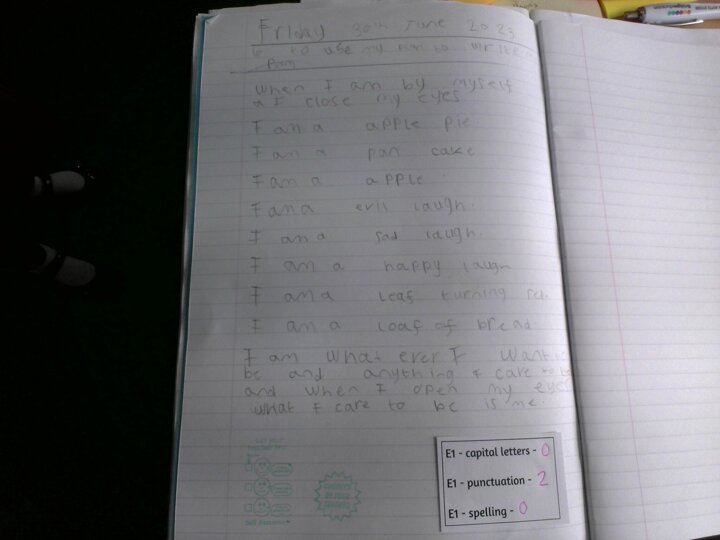 Friday 30th June 2023
to use my plan to write a
Poem
when I am by myself
I close my eyes
I am a apple pie.
I am a pan cake
I am a apple.
I am a evil laugh.
I am a sad laugh.
I am a happy laugh
I am a leaf turning red.
I am a loaf of bread.
I am what ever I want to
be and anything I care to be
and when I open my eyes
what I care to be is me.
E1 - capital letters - 0
E1 - punctuation - 2
E1 - spelling - 0
Self Assessment